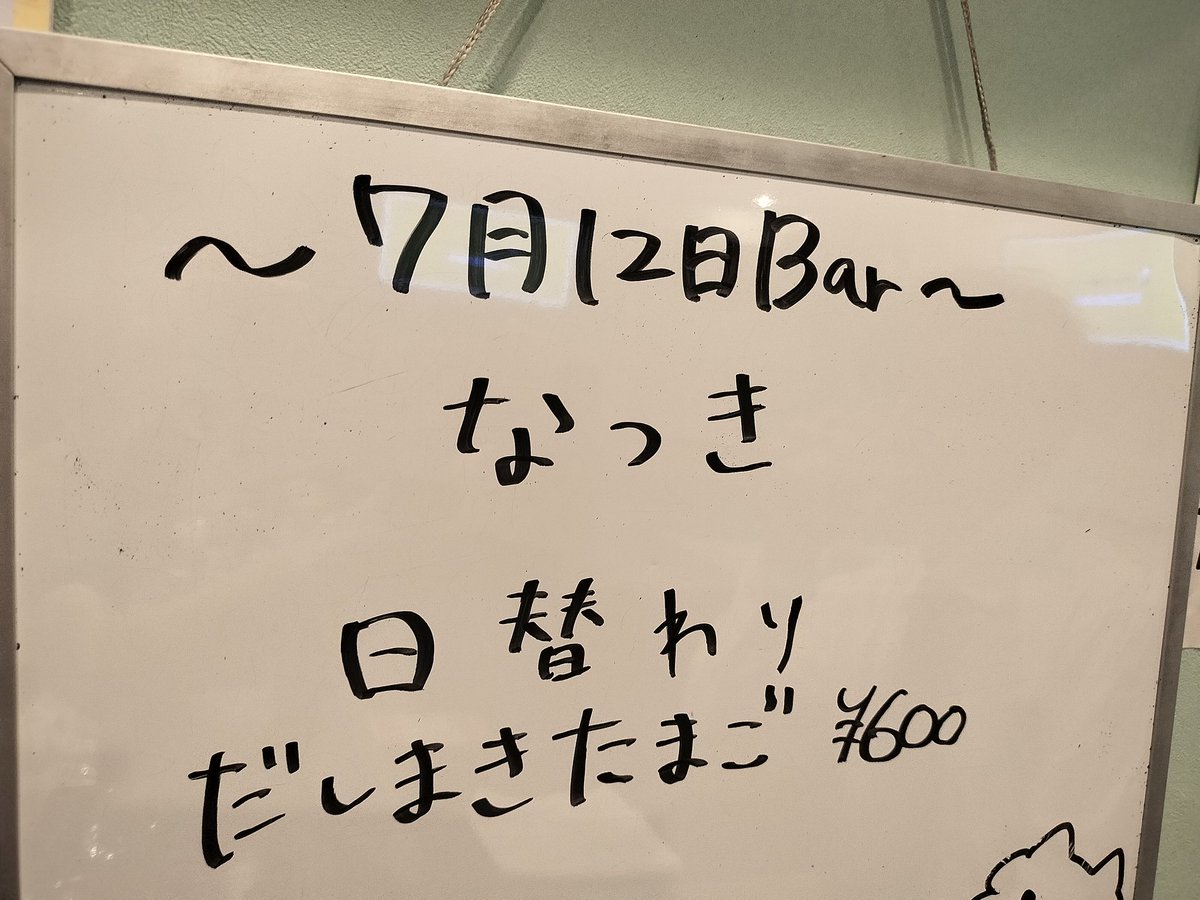 ～7月12日Bar～
なつき
日替わり
だしまきたまご ¥600